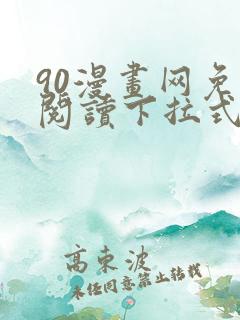 90漫畫网免
閱讀下拉式
高東波
未经同意禁止转载